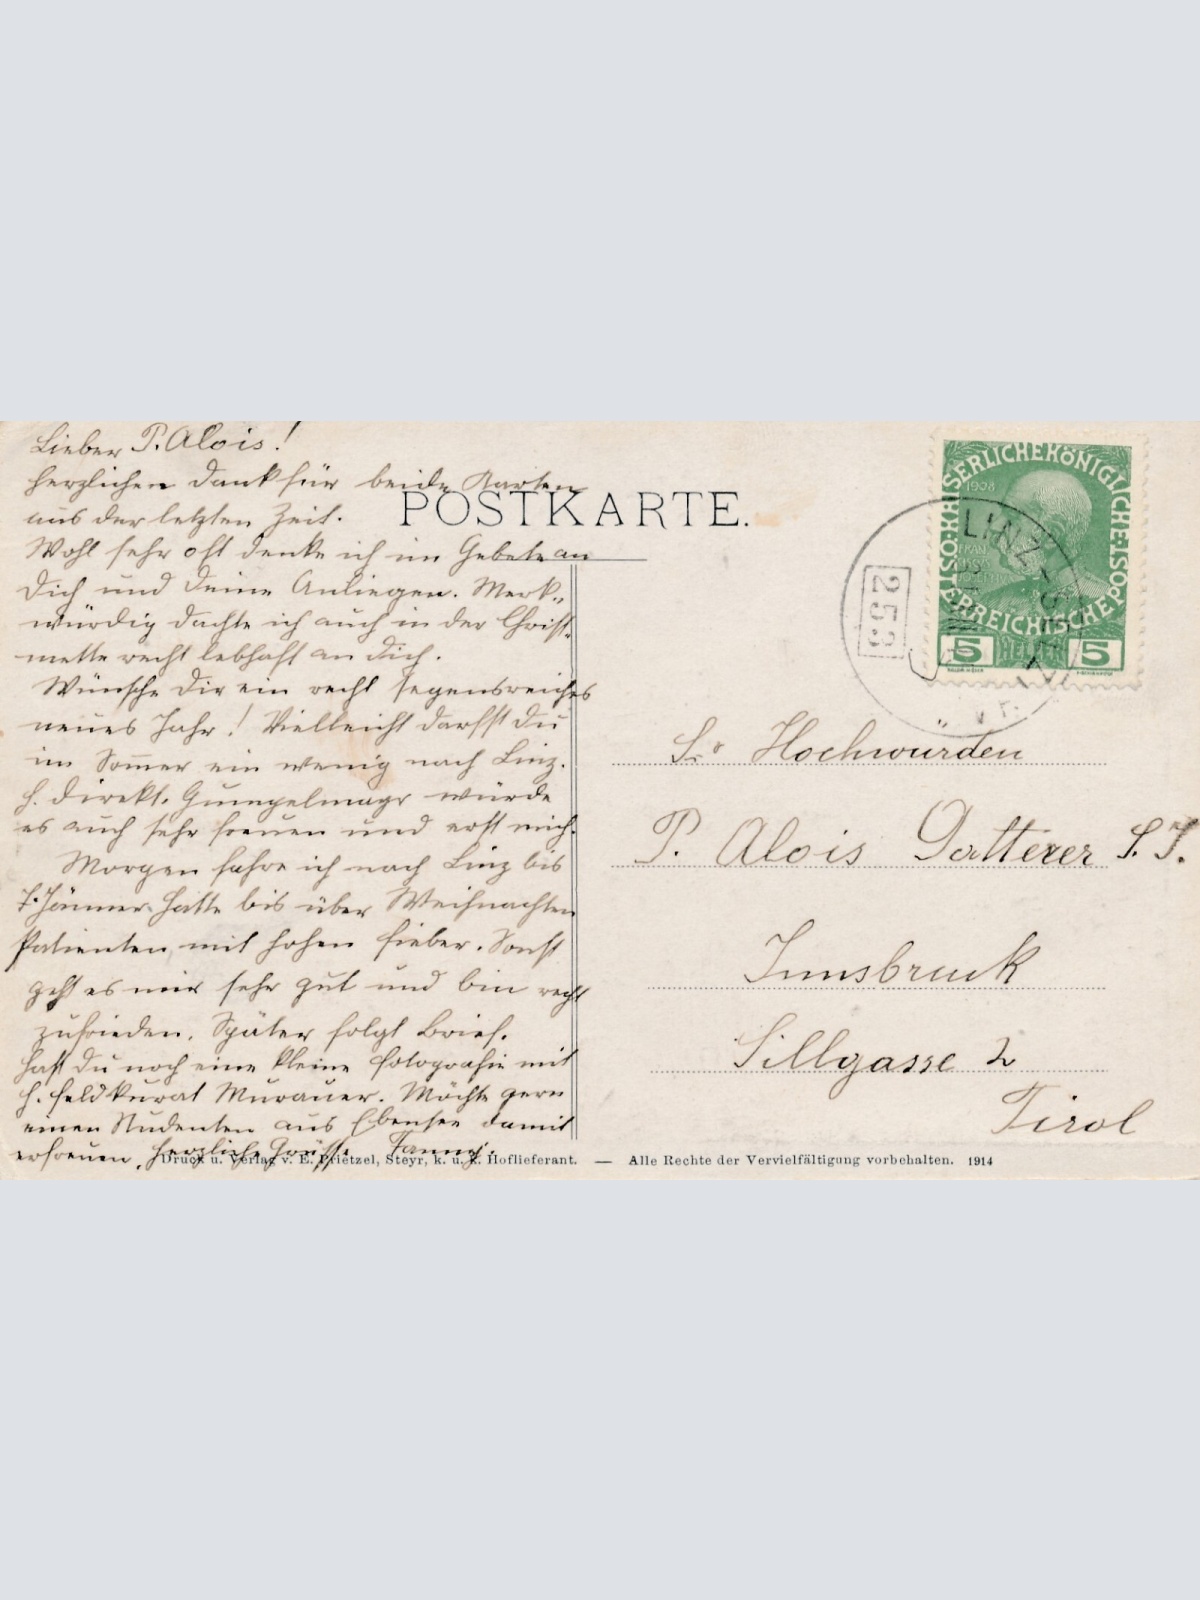 Lieber P. Alois!
Herzlichen Dank für beide Karten
aus der letzten Zeit.
Wohl sehr oft denke ich im Gebete an
Dich und Deine Anliegen. Merk„
würdig dachte ich auch in der Christ„
mette recht lebhaft an Dich.
Wünsche Dir ein recht segensreiches
neues Jahr! Vielleicht darfst Du
im Sommer ein wenig nach Linz.
H. Direkt. Gumpelmayr würde
es auch sehr freuen und erst mich.
Morgen fahre ich nach Linz bis
7. Jänner. Hatte bis über Weihnachten
Patienten mit hohen Fieber. Sonst
geht es mir sehr gut und bin recht
zufrieden. Später folgt Brief.
Hast Du noch eine kleine Fotografie mit
H. Feldkurat Murauer. Möchte gern
einen Studenten aus Ebensee damit
erfreuen. Herzliche Grüsse Fanny.
POSTKARTE.
KAISERLICHE KÖNIGLICHE ÖSTERREICHISCHE POST
1908
5 HELLER 5
LINZ
253
Sr Hochwürden
P. Alois Gatterer S. J.
Innsbruck
Sillgasse 2
Tirol
Druck u. Verlag v. E. Prietzel, Steyr, k. u. k. Hoflieferant. — Alle Rechte der Vervielfältigung vorbehalten. 1914